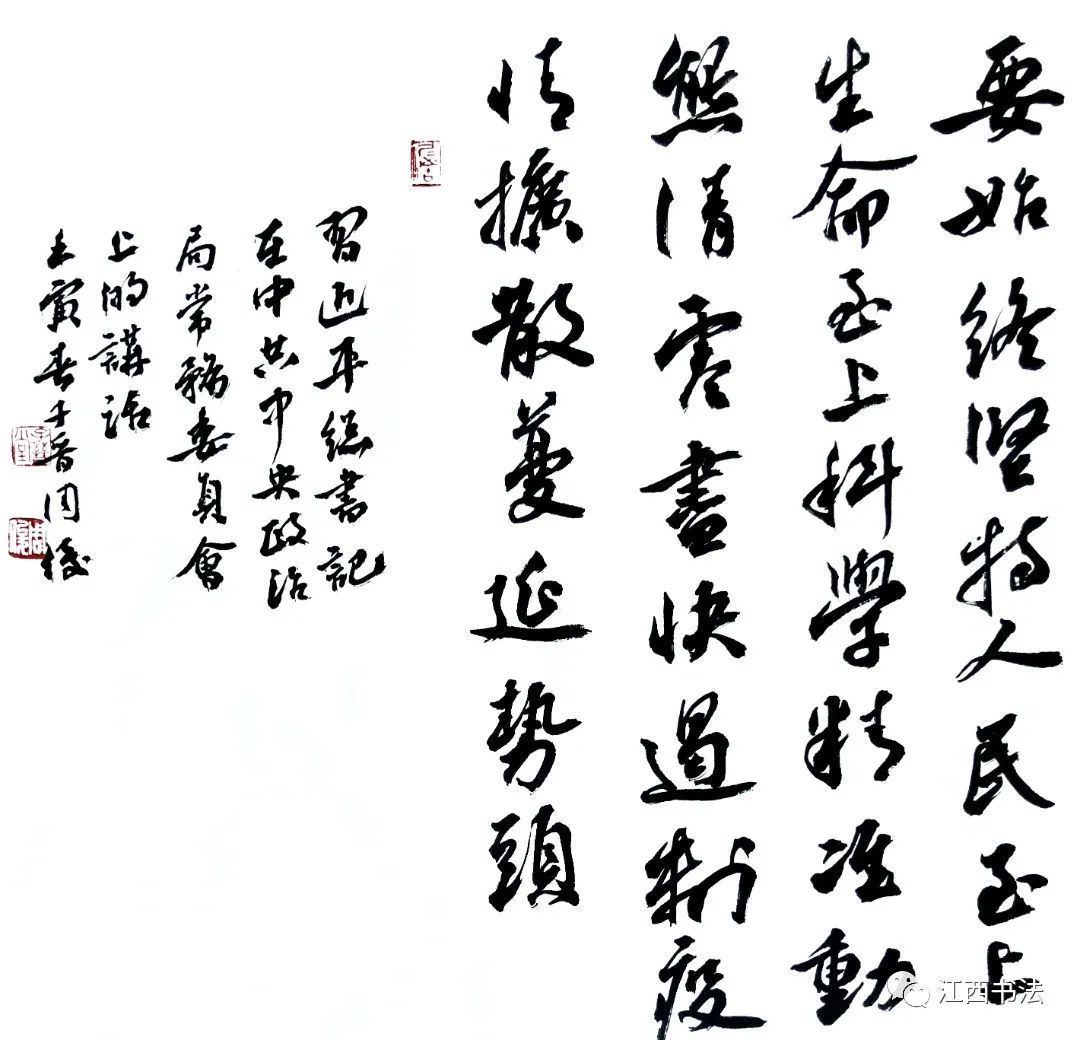 要始終堅持人民至上
生命至上科學精准動
態清零盡快遏制疫
情擴散蔓延勢頭
習近平總書記
在中共中央政治
局常務委員會
上的講話
壬寅春
江西书法